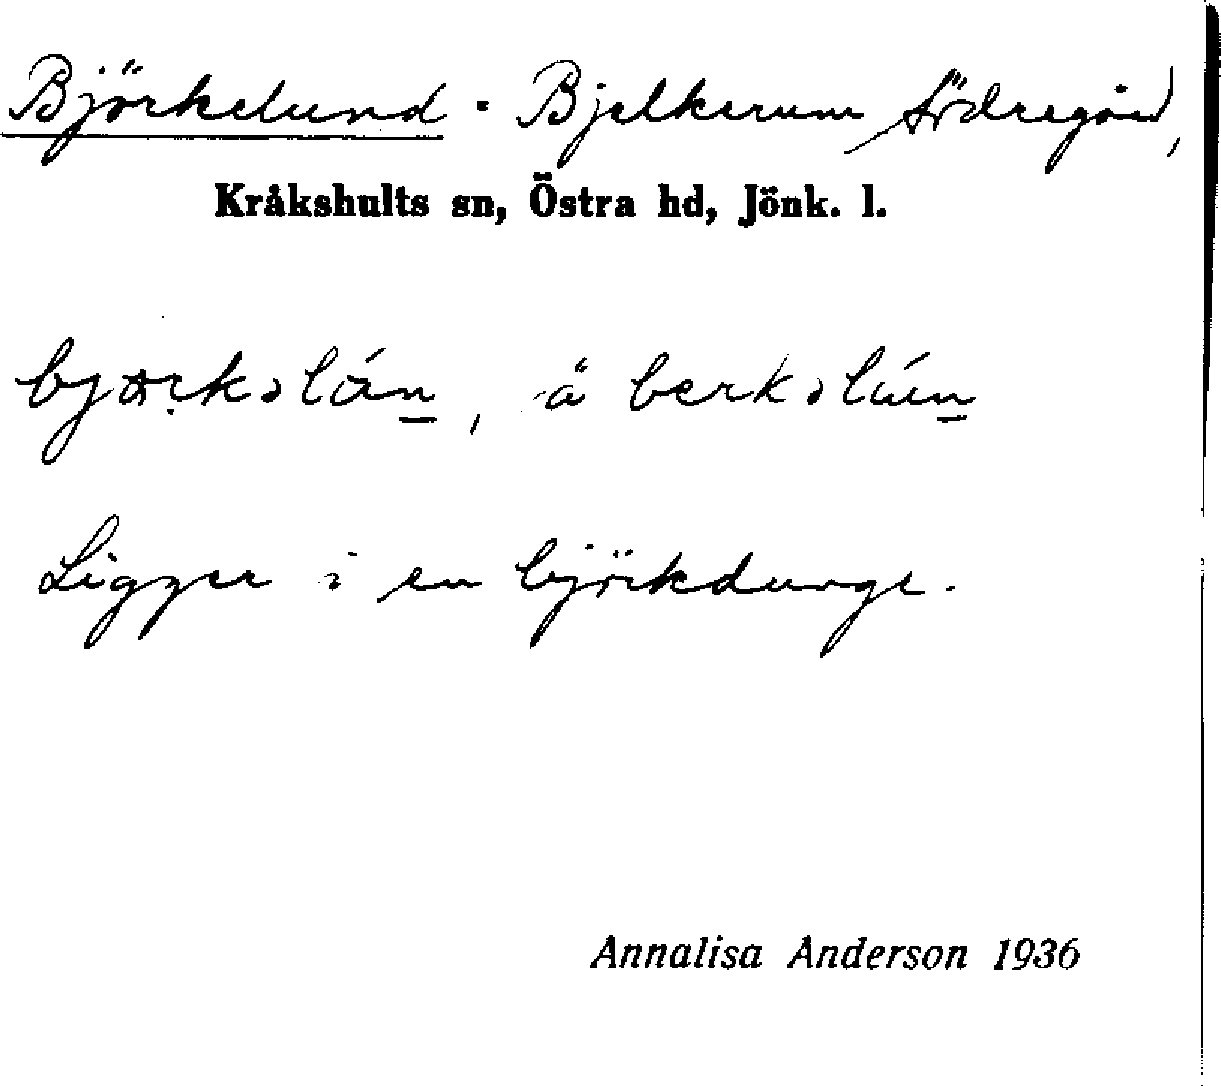 Björkelund - Bjelkerum Södregård,
Kråkshults sn, Östra hd, Jönk. l.
, å
Ligger i en björkdunge.
Annalisa Anderson 1936